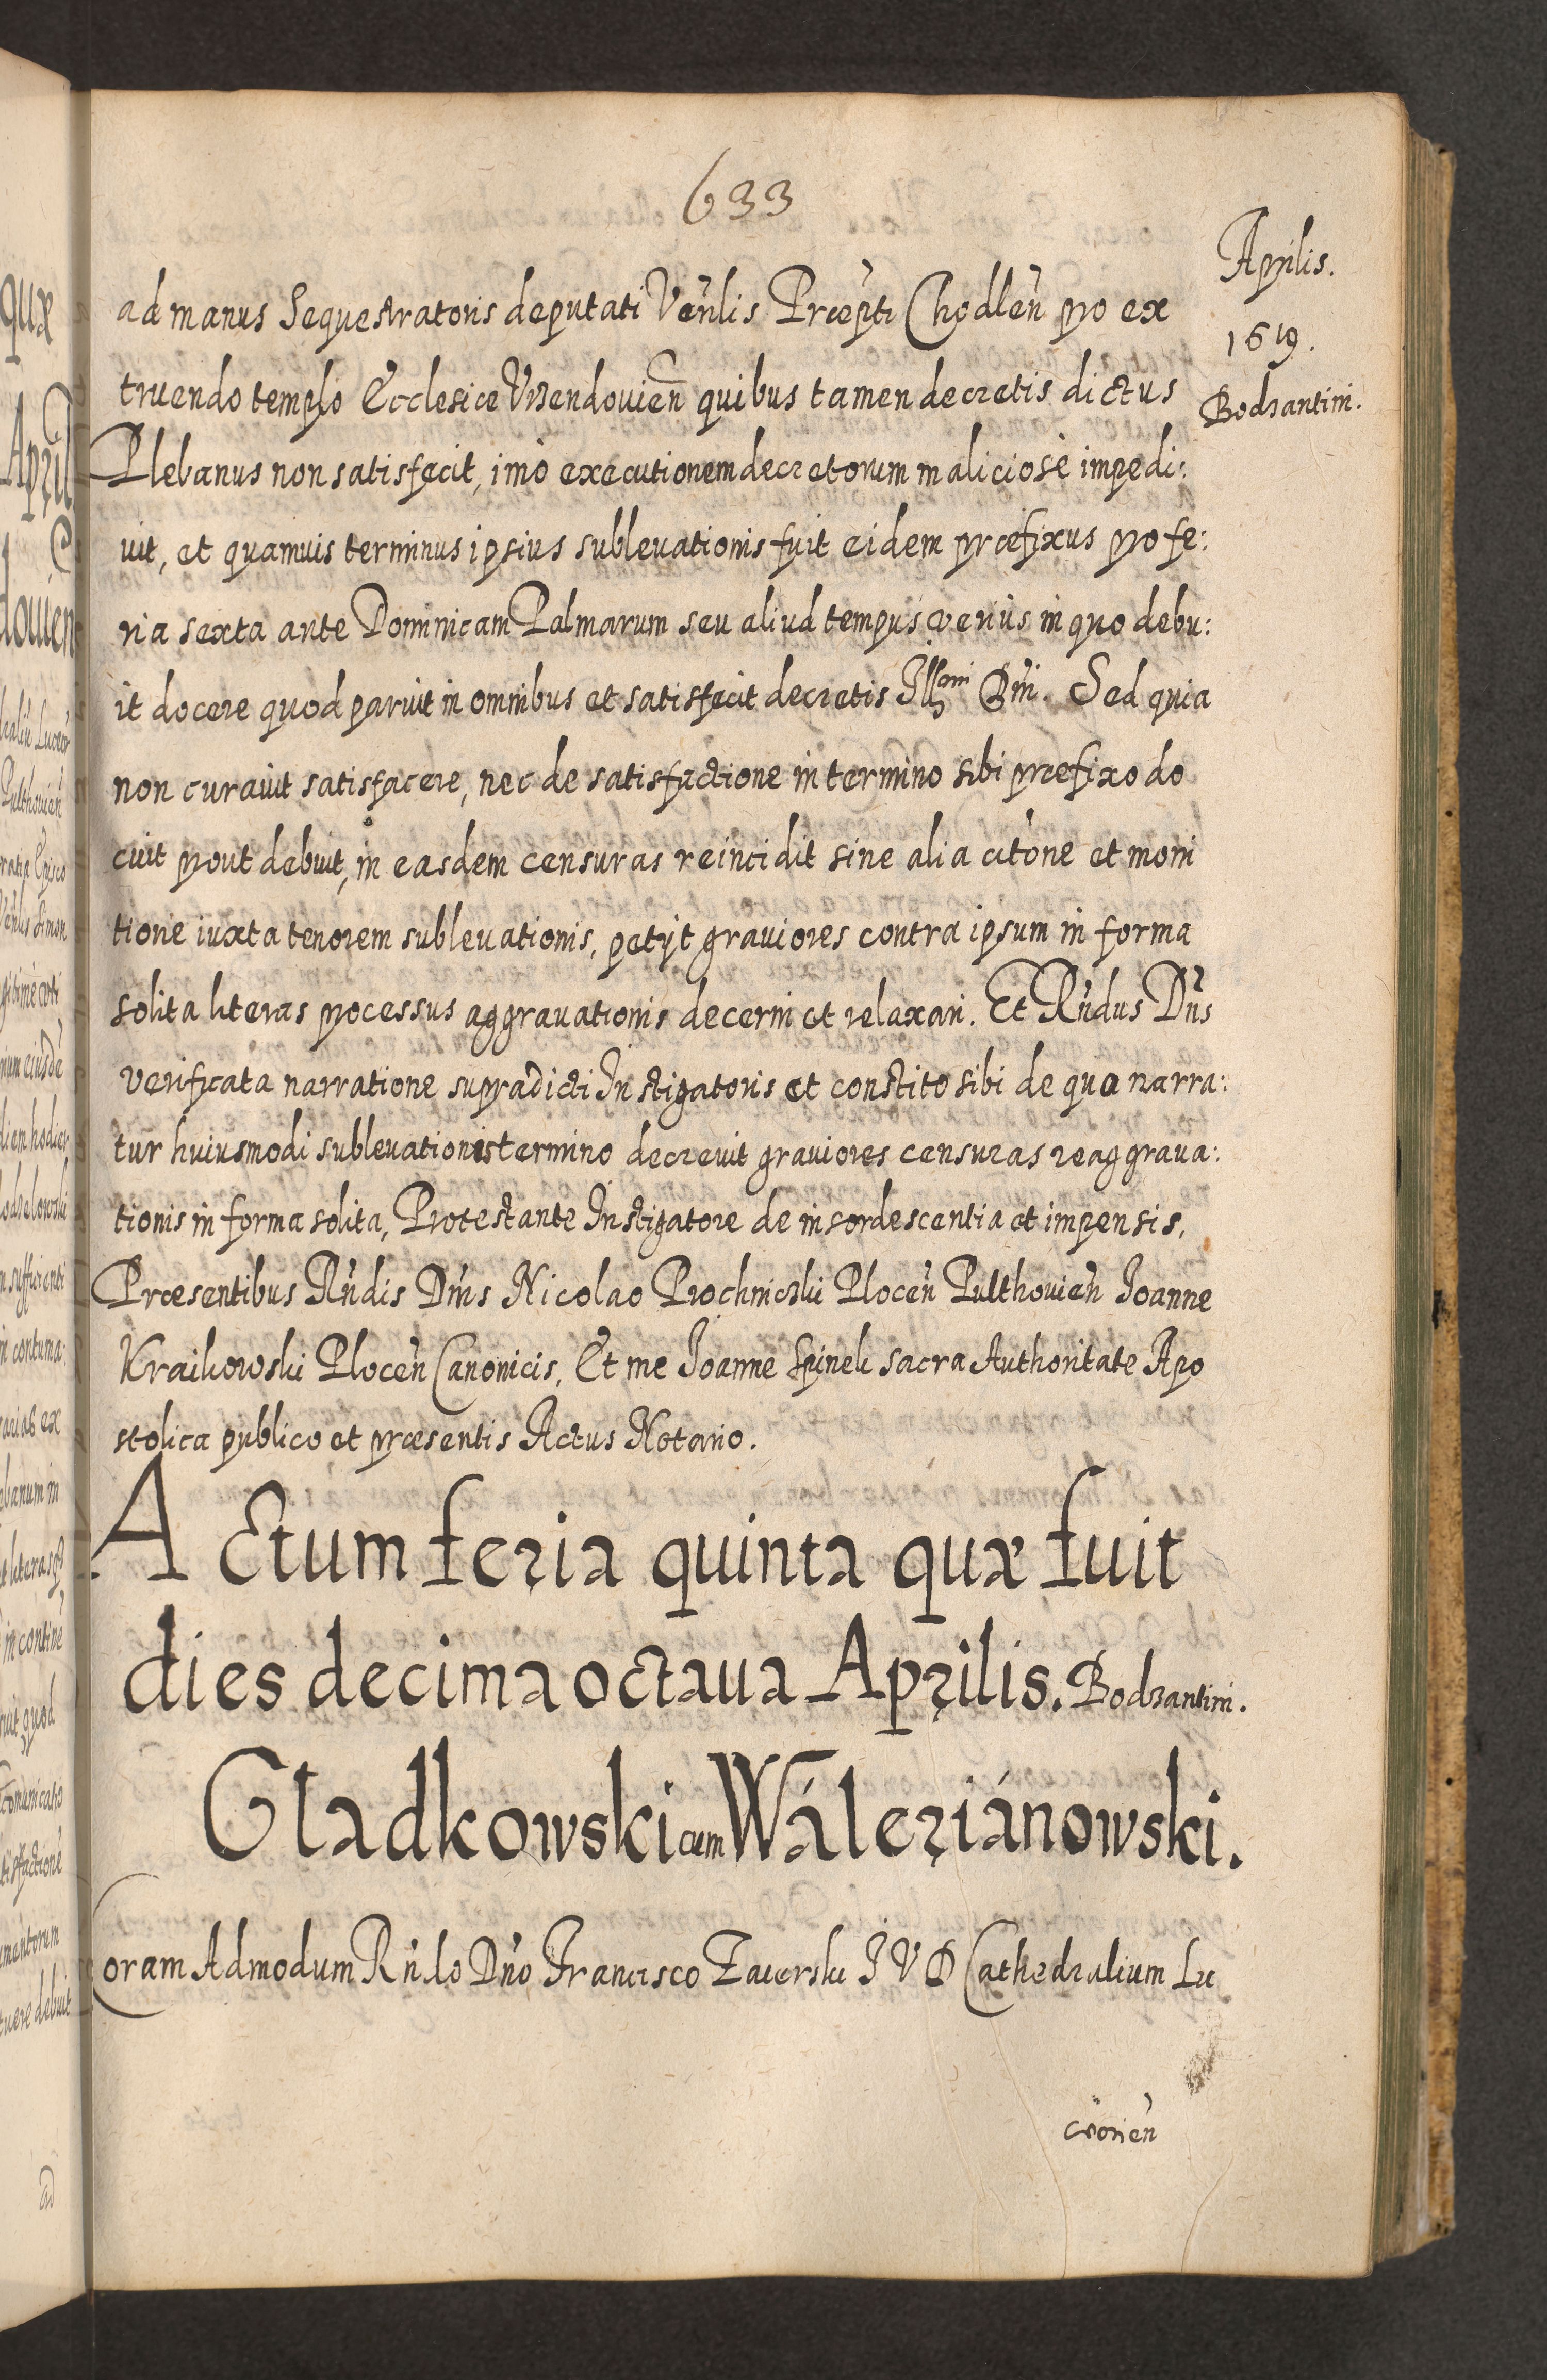 633
Aprilis.
1619.
Bodzantini.
ad manus Sequestratoris deputati Venlis Præpti Chodlen pro ex
truendo templo Ecclesiæ Vrzendouien quibus tamen decretis dictus
Plebanus non satisfecit, imo executionem decretorum maliciose impedi:
uit, et quamuis terminus ipsius subleuationis fuit eidem præfixus pro fe:
ria sexta ante Dominicam Palmarum seu aliud tempus verius in quo debu:
it docere quod paruit in omnibus et satisfecit decretis Illmi Dni. Sed quia
non curauit satisfacere, nec de satisfactione in termino sibi præfixo do
cuit prout debuit, in easdem censuras reincidit sine alia citone et moni
tione iuxta tenorem subleuationis, petijt grauiores contra ipsum in forma
solita literas processus aggrauationis decerni et relaxari. Et Rndus Dns
verificata narratione supradicti Instigatoris et constito sibi de quo narra:
tur huiusmodi subleuationis termino decreuit grauiores censuras reaggraua:
tionis in forma solita, Protestante Instigatore de insordescentia et impensis.
Præsentibus Rndis Dnis Nicolao Prochnicski Plocen Pulthouien Joanne
Kraikowski Plocen Canonicis, Et me Joanne Spinek sacra Authoritate Apo
stolica publico et præsentis Actus Notario.
Actum feria quinta quæ fuit
dies decima octaua Aprilis. Bodzantini.
Gladkowski cum Wáleriánowski.
Coram Admodum Rndo Dno Francisco Zaierski J V D Cathedralium Lu
ceorien